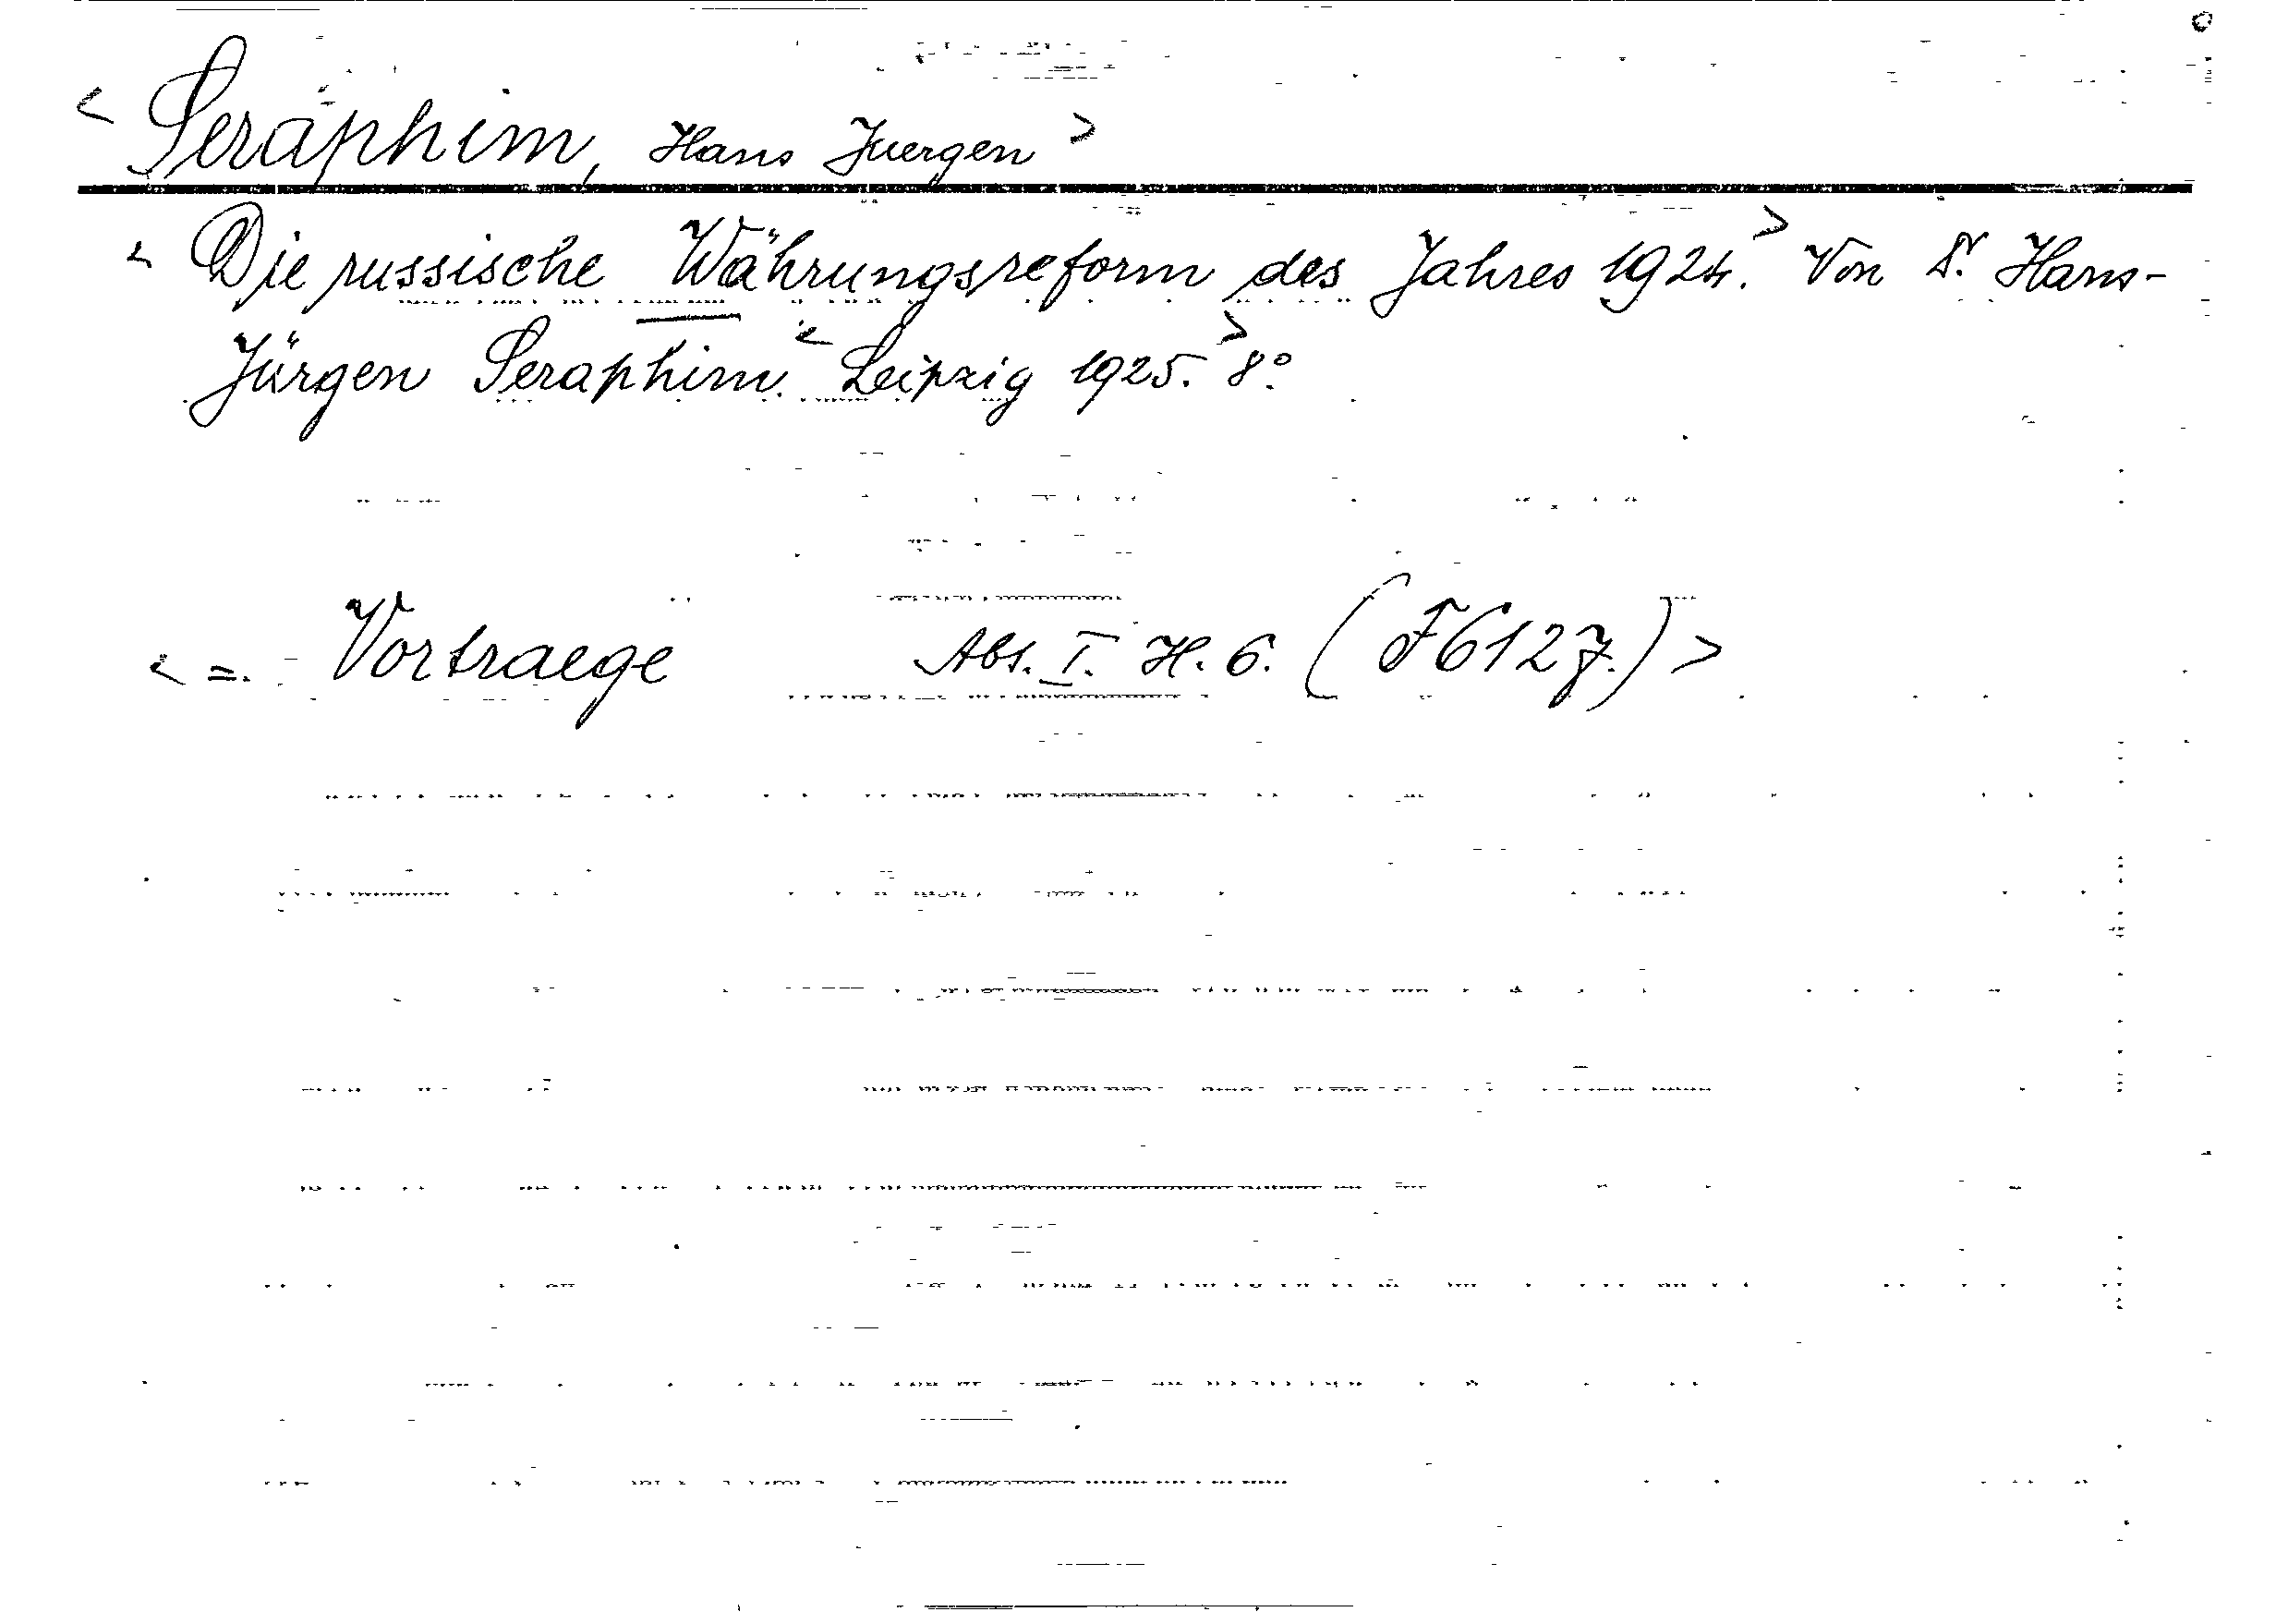 < Seraphim, Hans Juergen >
< Die russische Währungsreform des Jahres 1924. > Von Dr. Hans-
Jürgen Seraphim. < Leipzig 1925. > 8°.
< =. Vortraege Abt. I. H. 6. (F6127.) >